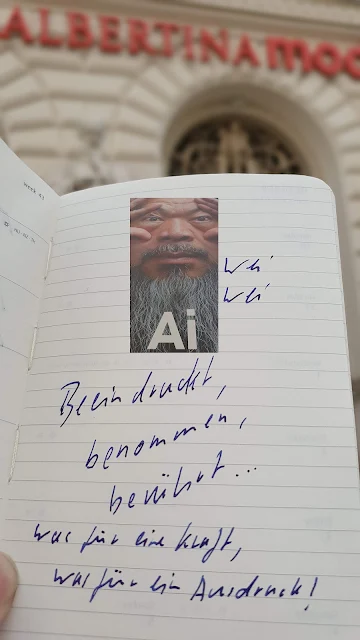 ALBERTINA mod
Week 43
Ai
Wei
Wei
Beeindruckt,
benommen,
berührt...
was für eine Kraft,
was für ein Ausdruck!